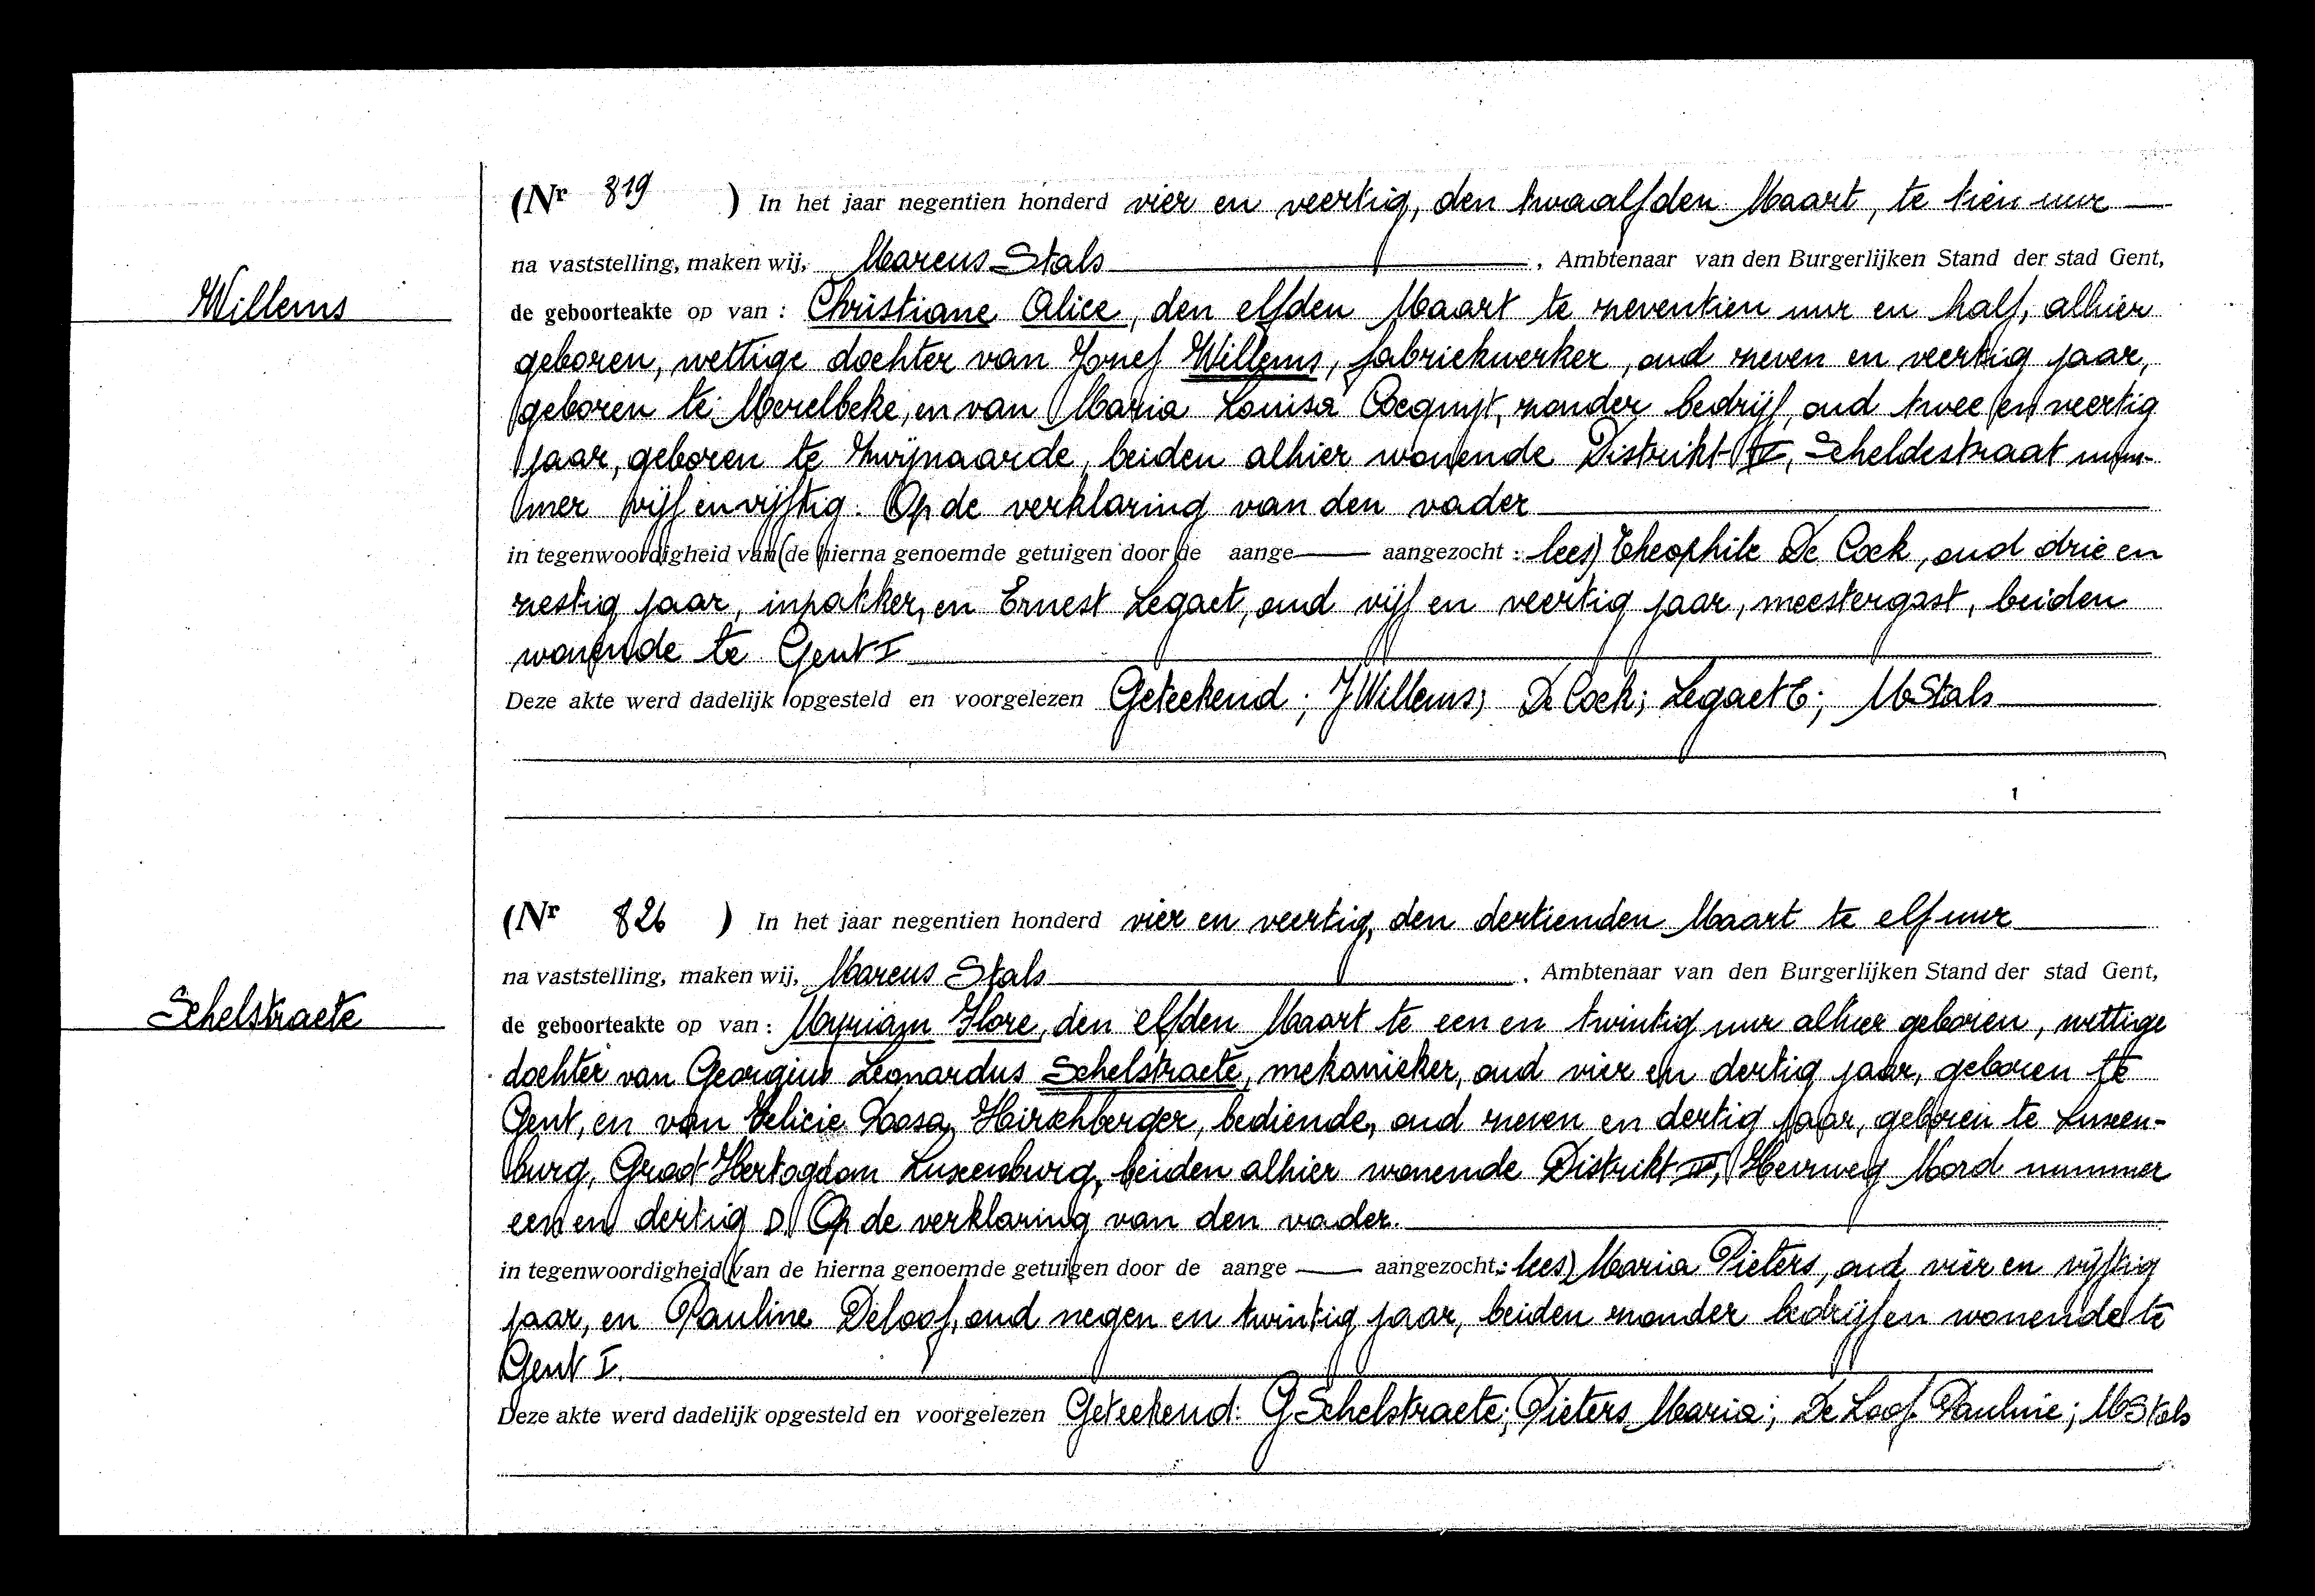 (Nr 819 ) In het jaar negentien honderd vier en veertig, den twaalfden Maart, te tien uur
na vaststelling, maken wij, Marcus Stals, Ambtenaar van den Burgerlijken Stand der stad Gent,
Willems
de geboorteakte op van : Christiane Alice, den elfden Maart te zeventien uur en half, alhier
geboren, wettige dochter van Jozef Willems, fabriekwerker, oud zeven en veertig jaar,
geboren te Merelbeke, en van Maria Louisa Cocquyt, zonder bedrijf, oud twee en veertig
jaar, geboren te Zwijnaarde, beiden alhier wonende Distrikt Scheldestraat num-
mer vijf en vijftig. Op de verklaring van den vader
in tegenwoordigheid van (de hierna genoemde getuigen door de aange aangezocht : lees) Theophile De Cock, oud drie en
zestig jaar, inpakker, en Ernest Legaet, oud vijf en veertig jaar, meestergast, beiden
wonende te Gent I
Deze akte werd dadelijk opgesteld en voorgelezen Geteekend ; J Willems; De Cock; Legaet E; M Stals
(Nr 826 ) In het jaar negentien honderd vier en veertig, den dertienden Maart te elf uur
na vaststelling, maken wij, Marcus Stals, Ambtenaar van den Burgerlijken Stand der stad Gent,
Schelstraete
de geboorteakte op van : Myriam Flore, den elfden Maart te een en twintig uur alhier geboren, wettige
dochter van Georgius Leonardus Schelstraete, mekanieker, oud vier en dertig jaar, geboren te
Gent, en van Felicie Hirschberger, bediende, oud zeven en dertig jaar, geboren te Luxen-
burg, Groot Hertogdom Luxenburg, beiden alhier wonende Distrikt Heirweg Noord nummer
een en dertig D. Op de verklaring van den vader.
in tegenwoordigheid (van de hierna genoemde getuigen door de aange aangezocht : lees) Maria Pieters, oud vier en vijftig
jaar, en Pauline Deloof, oud negen en twintig jaar, beiden zonder bedrijf en wonende te
Gent I.
Deze akte werd dadelijk opgesteld en voorgelezen Geteekend: G Schelstraete; Pieters Maria; De Loof Pauline; M Stals